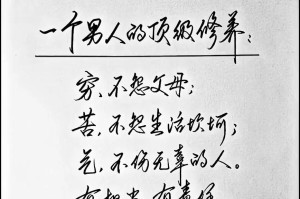 一个男人的顶级修养：
穷，不怨父母；
苦，不怨生活坎坷；
气，不伤无辜的人。